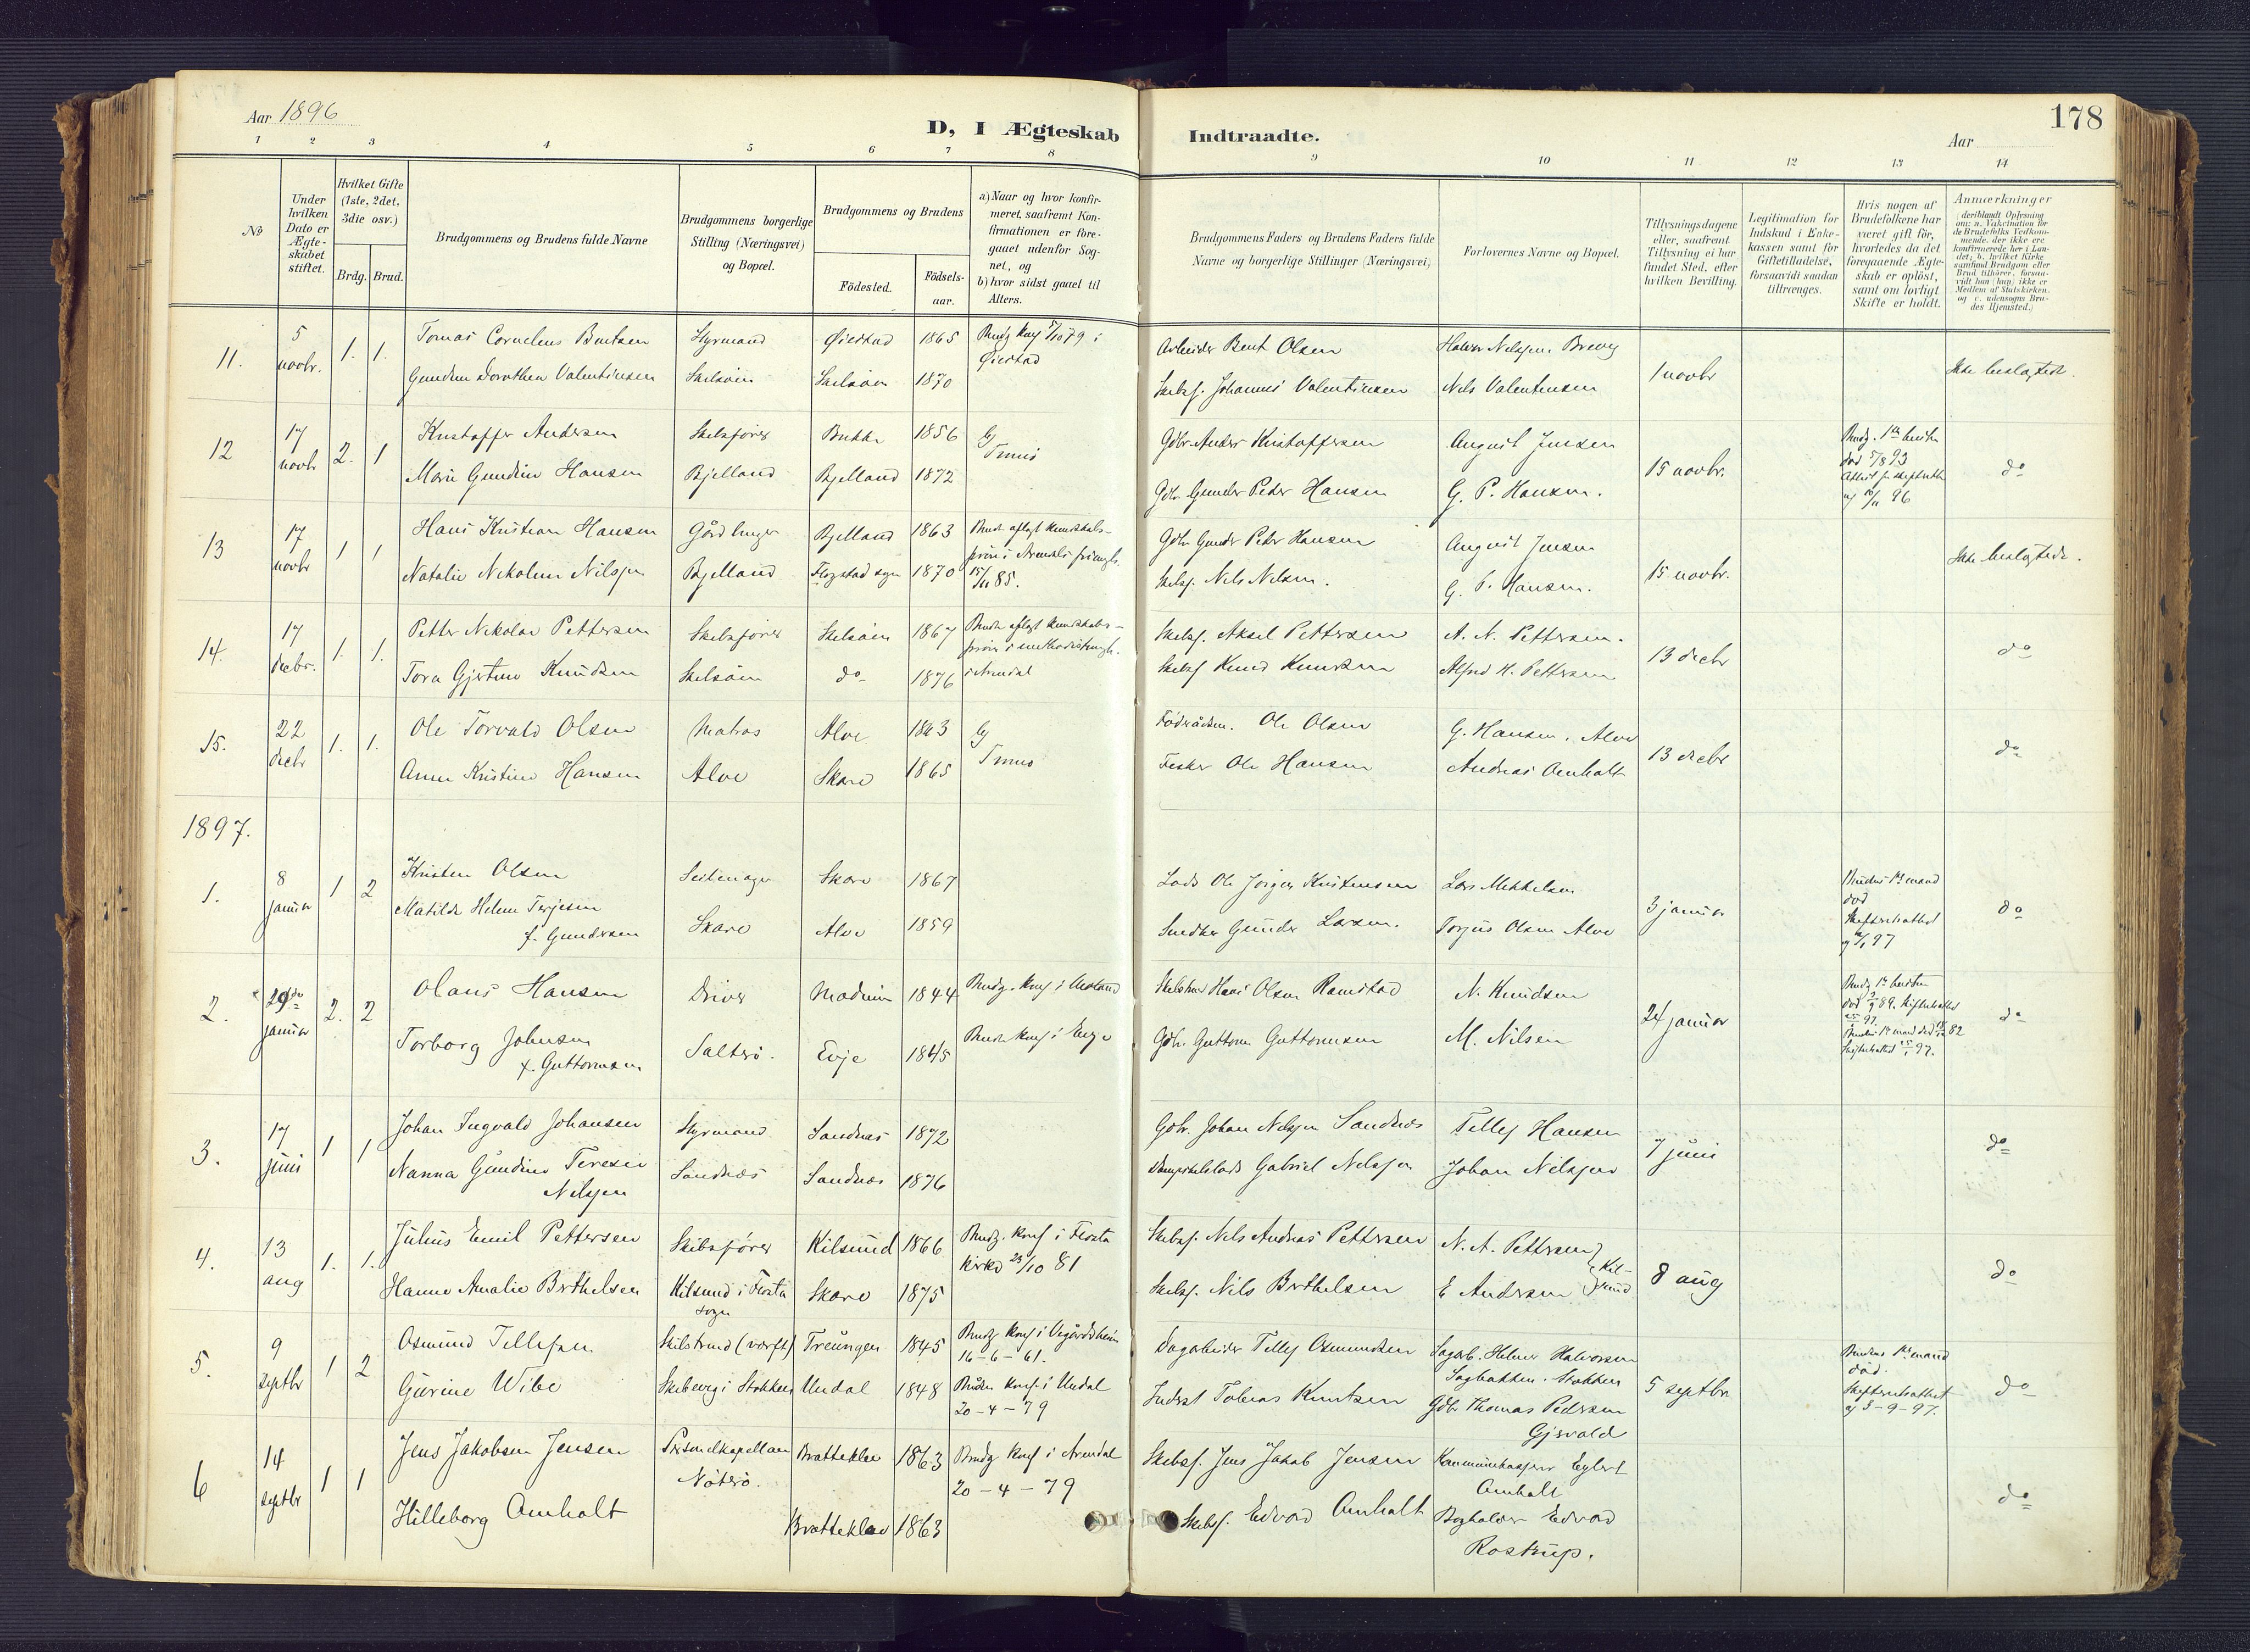 Aar 1896
D, I Ægteskab Indtraadte.
178
Aar
1 2 3 4 5 6 7 8 9 10 11 12 13 14
No
Under hvilken Dato er Ægteskabet stiftet.
Hvilket Gifte (1ste, 2det, 3die osv.)
Brdg. Brud.
Brudgommens og Brudens fulde Navne
Brudgommens borgerlige Stilling (Næringsvei) og Bopæl.
Brudgommens og Brudens
Födested.
Födsels-aar.
a) Naar og hvor konfirmeret, saafremt Konfirmationen er foregaaet udenfor Sognet, og
b) hvor sidst gaaet til Alters.
Brudgommens Faders og Brudens Faders fulde Navne og borgerlige Stillinger (Næringsvei)
Forlovernes Navne og Bopæl.
Tillysningsdagene eller, saafremt Tillysning ei har fundet Sted, efter hvilken Bevilling.
Legitimation for Indskud i Enkekassen samt for Giftetilladelse, forsaavidt saadan tiltrænges.
Hvis nogen af Brudefolkene har været gift før, hvorledes da det foregaaende Ægteskab er oplöst, samt om lovligt Skifte er holdt.
Anmærkninger
(deriblandt Oplysning om: a. Vakcination for de Brudefolks Vedkommende, der ikke ere konfirmerede her i Landet; b. hvilket Kirkesamfund Brudgom eller Brud tilhörer, forsaavidt han (hun) ikke er Medlem af Statskirken, og c. udensogns Brudes Hjemsted.)
11. 5 novbr. 1. 1. Tomas Cornelius Bentsen Styrmand Øiestad 1865 Brudg. konf 5/10 79 i Øiestad Arbeider Bent Olsen Halvor Nilsen, Brevig 1 novbr Ikke beslægtede.
Gundine Dorothea Valentinsen Skilsøen Skilsøen 1870 Skibsf. Johannes Valentinsen Nils Valentinsen
12 17 novbr 2. 1 Kristoffer Andersen Skibsfører 1856 Gdbr. Anders Kristoffersen August Jensen 15 novbr. do
Marie Gundine Hansen Bjelland Bjelland 1872 Gdbr. Gunder Peder Hansen G. P. Hansen.
13 17 novbr 1 1 Hans Kristian Hansen Bjelland 1863 Gdbr Gunder Peder Hansen August Jensen 15 novbr. Ikke beslægtede.
Natalie Nikoline Nilsen Bjelland 1870 15/11 85. Skibsf. Nils Nilsen. G. P. Hansen.
14. 17 decbr. 1. 1. Petter Nikolai Pettersen Skibsfører Skilsøen 1867 Skibsf. Aksel Pettersen A. N. Pettersen. 13 decbr do
Tora Gjertine Knudsen Skilsøen do 1876 i Arendal Skibsf Knud Knudsen Alfred H. Pettersen
15. 22 decbr 1. 1. Ole Torvald Olsen Matros Alve 1863 Ole Olsen G. Hansen, Alve 13 decbr do
Anne Kristine Hansen Alve Skare 1865 Fisker Ole Hansen Andreas Omholt
1897.
1. 8 januar 1 2 Kristen Olsen Seilmager Skare 1867 Lods Ole Jørgen Kristensen Lars Mikkelsen 3 januar Brudens 1ste mand død do
Matilde Helene Terjesen f. Gundersen Skare Alve 1859 Snedker Gunder Larsen. Torjus Olsen Alve
2. januar 2. 2 Olaus Hansen Driver Modum 1844 Hans Olsen Ramstad N. Knudsen 24 januar do
Torborg Johnsen f. Guttormsen Salterø. Evje 1845 Gdbr. Guttorm Guttormsen M. Nilsen
3. 17 juni 1 1 Johan Ingvald Johansen Styrmand Sandnæs 1872 Gdbr. Johan Nilsen Sandnæs Tellef Hansen 7 juni do
Nanna Gundine Teresie Nilsen Sandnæs Sandnæs 1876 Gabriel Nilsen Johan Nilsen
4. 13 aug 1. 1. Julius Emil Pettersen Skibsfører Kilsund 1866 Brudg. konf i Flosta kirke 23/10 81 Skibsf. Nils Andreas Pettersen N. A. Pettersen 8 aug do
Hanne Amalie Berthelsen Kilsund i Flosta sogn Skare 1875 Skibsf. Nils Berthelsen E Andersen Kilsund
5. 9 septbr 1 2 Osmund Tellefsen Treungen 1845 Brudg konf i Vegårdsheien 16-6-61. Dagarbeider Tellef Osmundsen Halvorsen 5 septbr. Brudens 1ste mand død. Skifteretsattest af 3-9-97. do
Gurine Wibe i Stokken Undal 1848 Bruden konf. i Undal 20-4-79 Inderst Tobias Knutsen Gdbr Thomas Pedersen Gjervold
6 14 septbr 1 1 Jens Jakobsen Jensen Personelkapellan Nøterø. Bratteklev 1863 Brudg konf i Arendal 20-4-79 Skibsf. Jens Jakob Jensen Omholt do
Hilleborg Omholt Bratteklev 1863 Skibsf. Edvard Omholt Bogholder Edvard Rostrup.